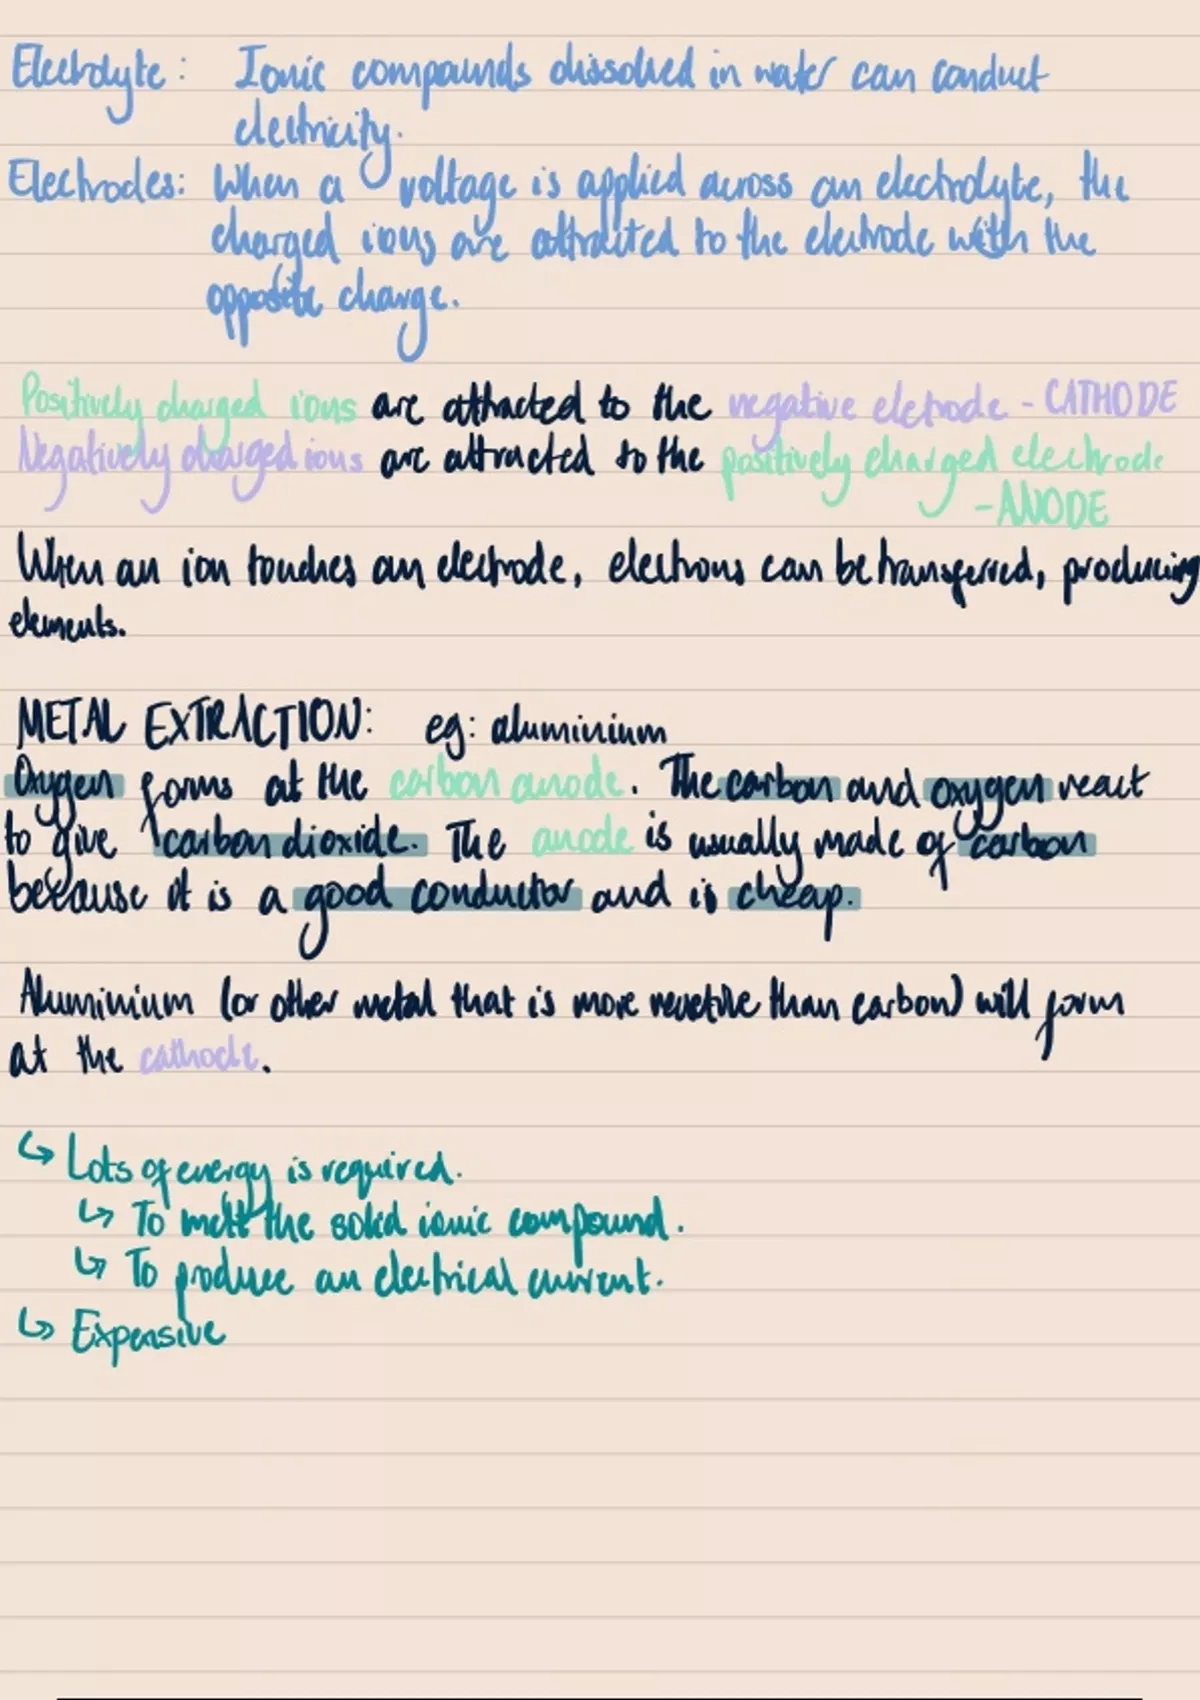 Electrolyte: Ionic compounds dissolved in water can conduct
electricity.
Electrodes: When a voltage is applied across an electrolyte, the
charged ions are attracted to the electrode with the
opposite charge.
Positively charged ions are attracted to the negative eletrode - CATHODE
Negatively charged ions are attracted to the positively charged electrode
- ANODE
When an ion touches an electrode, electrons can be transferred, producing
elements.
METAL EXTRACTION: eg: aluminium
Oxygen forms at the carbon anode. The carbon and oxygen react
to give carbon dioxide. The anode is usually made of carbon
because it is a good conductor and is cheap.
Aluminium (or other metal that is more reactive than carbon) will form
at the cathode.
↳ Lots of energy is required.
↳ To melt the solid ionic compound.
↳ To produce an electrical current.
↳ Expensive